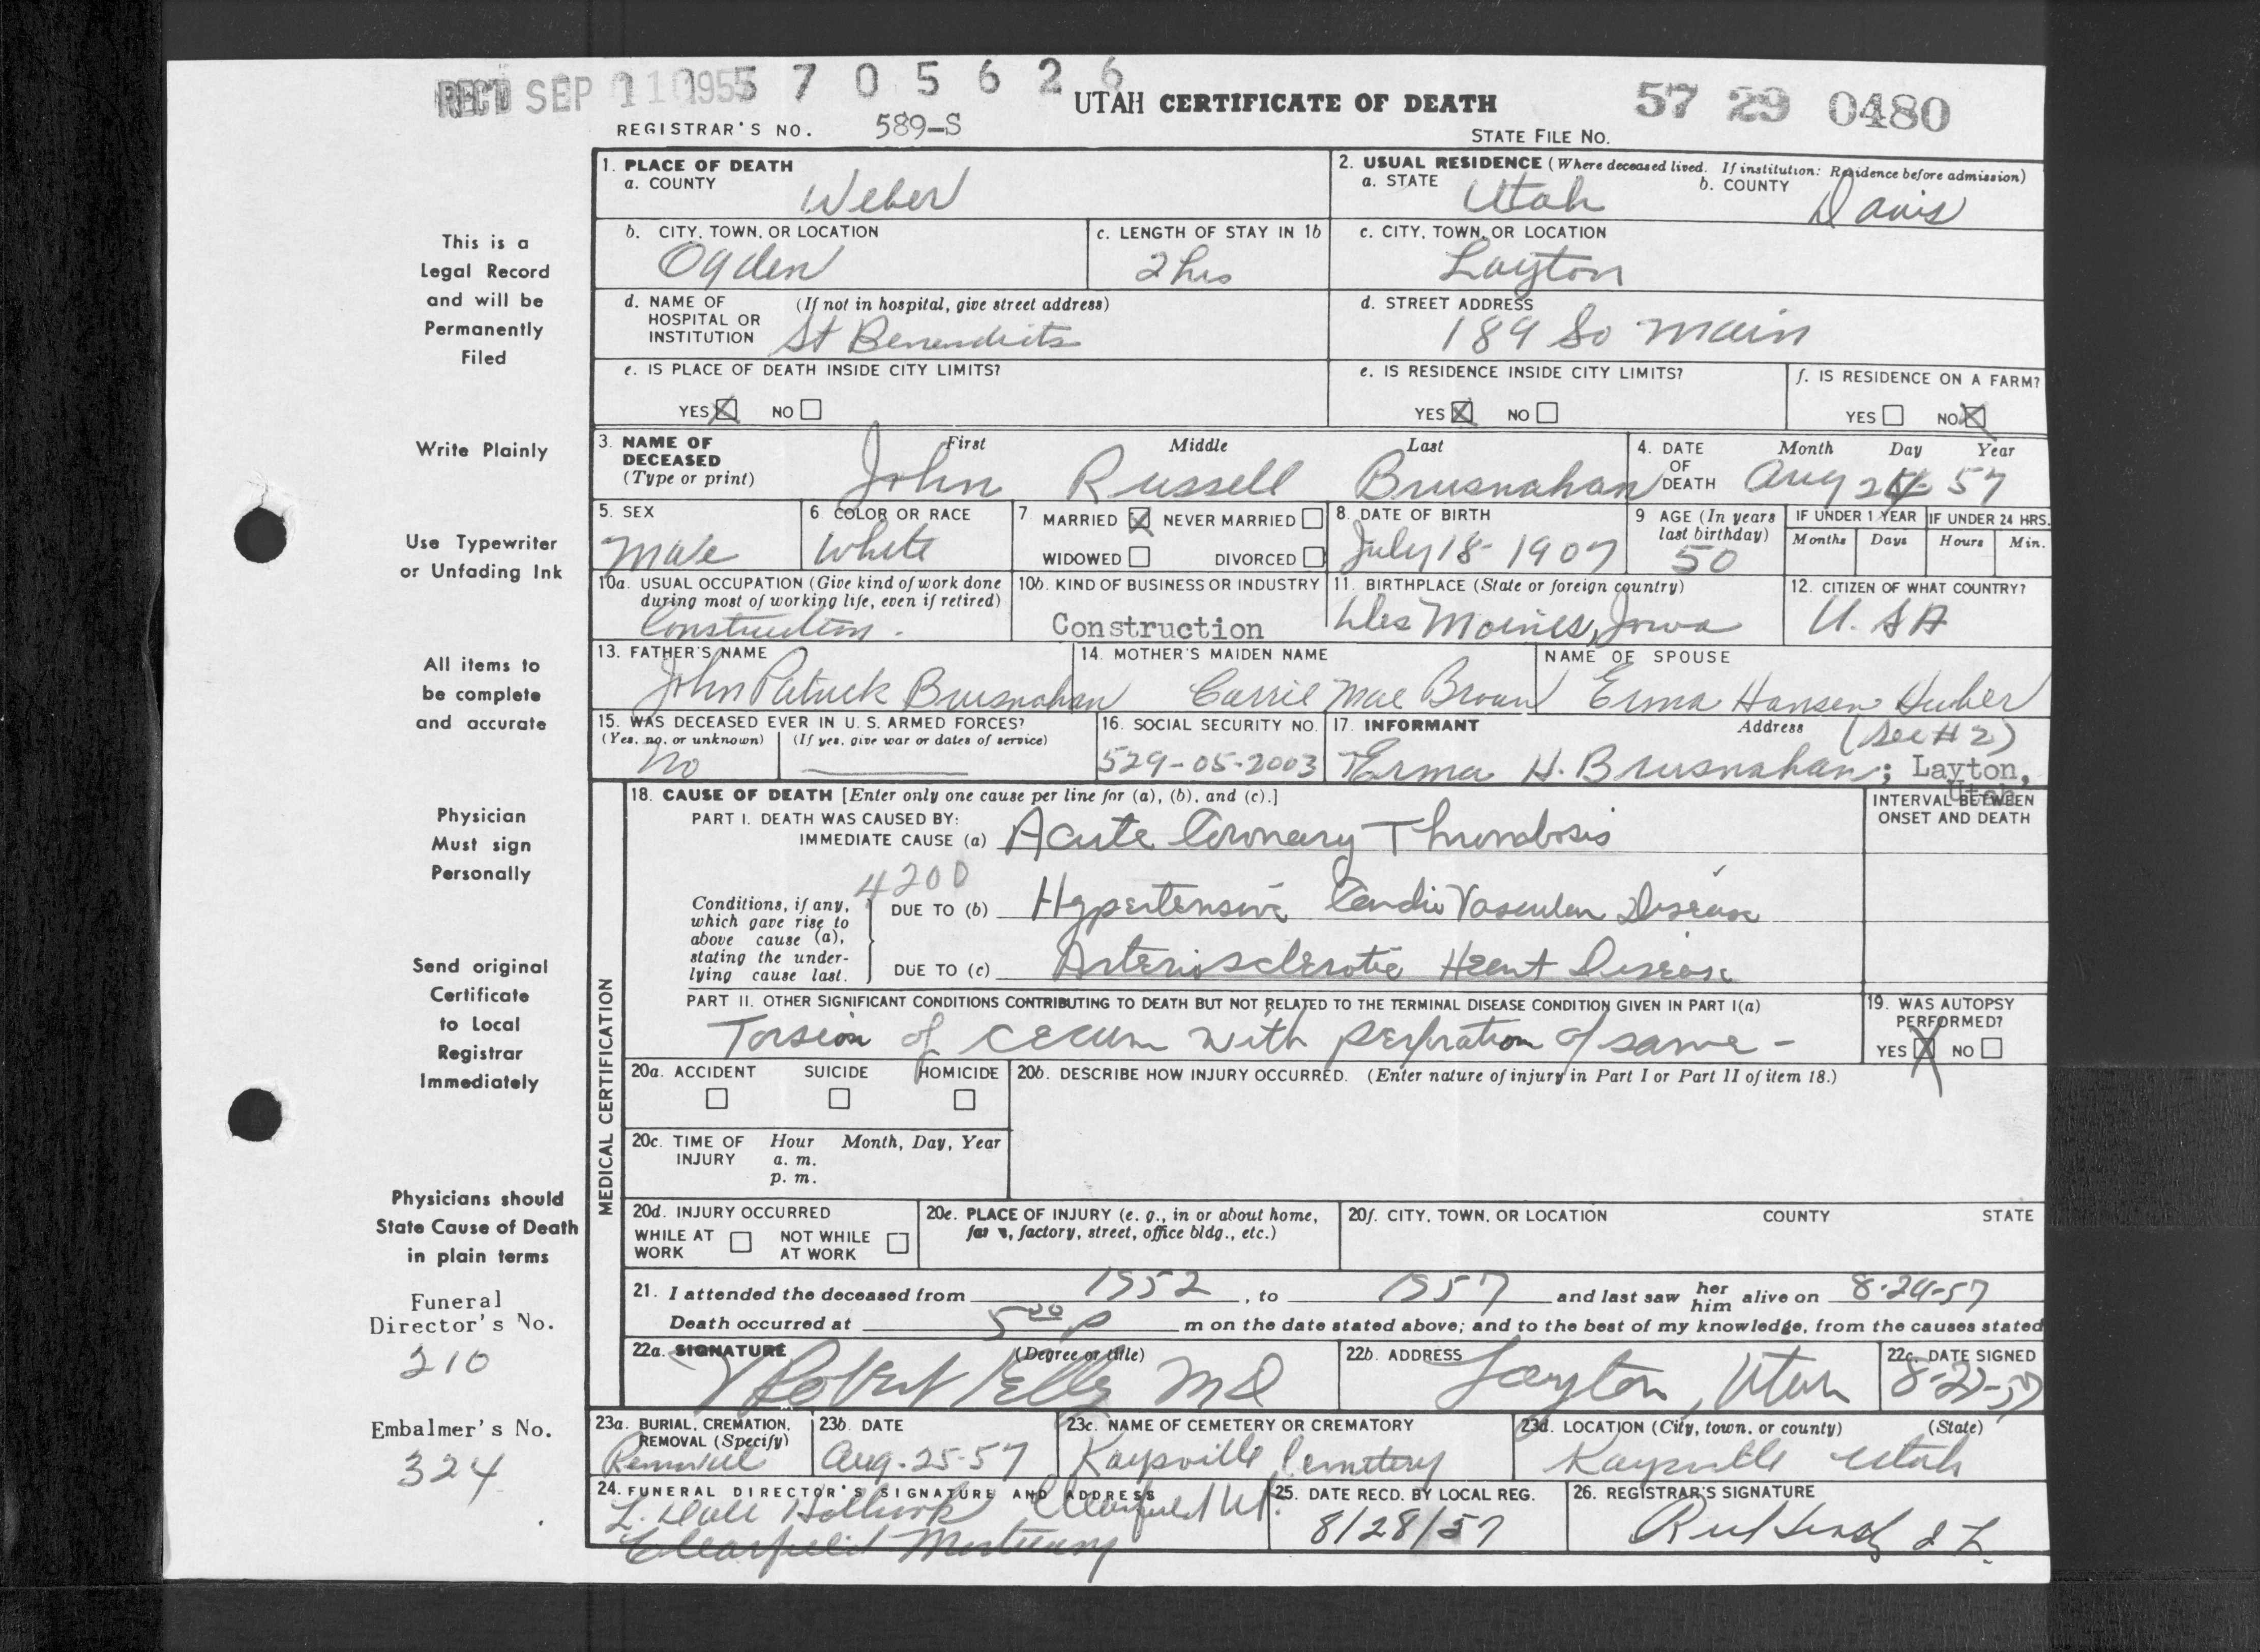 REC'D SEP 11 1957 5 7 0 5 6 2 6
UTAH CERTIFICATE OF DEATH
57 29 0480
REGISTRAR'S NO. 589-S
STATE FILE NO.
This is a
Legal Record
and will be
Permanently
Filed
Write Plainly
Use Typewriter
or Unfading Ink
All items to
be complete
and accurate
Physician
Must sign
Personally
Send original
Certificate
to Local
Registrar
Immediately
Physicians should
State Cause of Death
in plain terms
Funeral
Director's No.
210
Embalmer's No.
324
1. PLACE OF DEATH
a. COUNTY Weber
2. USUAL RESIDENCE (Where deceased lived. If institution: Residence before admission)
a. STATE Utah b. COUNTY Davis
b. CITY, TOWN, OR LOCATION
Ogden
c. LENGTH OF STAY IN 1b
2 hrs
c. CITY, TOWN, OR LOCATION
Layton
d. NAME OF (If not in hospital, give street address)
HOSPITAL OR
INSTITUTION St Benedicts
d. STREET ADDRESS
189 So Main
e. IS PLACE OF DEATH INSIDE CITY LIMITS?
YES X NO
e. IS RESIDENCE INSIDE CITY LIMITS?
YES X NO
f. IS RESIDENCE ON A FARM?
YES NO X
3. NAME OF First Middle Last
DECEASED
(Type or print) John Russell Brusnahan
4. DATE Month Day Year
OF
DEATH Aug 24 57
5. SEX
Male
6. COLOR OR RACE
White
7 MARRIED X NEVER MARRIED
WIDOWED DIVORCED
8. DATE OF BIRTH
July 18-1907
9 AGE (In years
last birthday)
50
IF UNDER 1 YEAR IF UNDER 24 HRS.
Months Days Hours Min.
10a. USUAL OCCUPATION (Give kind of work done
during most of working life, even if retired)
Construction.
10b. KIND OF BUSINESS OR INDUSTRY
Construction
11. BIRTHPLACE (State or foreign country)
Des Moines, Iowa
12. CITIZEN OF WHAT COUNTRY?
U.S.A
13. FATHER'S NAME
John Patrick Brusnahan
14. MOTHER'S MAIDEN NAME
Carrie Mae Brown
NAME OF SPOUSE
Erma Hansen Huber
15. WAS DECEASED EVER IN U. S. ARMED FORCES?
(Yes, no, or unknown) (If yes, give war or dates of service)
No
16. SOCIAL SECURITY NO.
529-05-2003
17. INFORMANT Address (See #2)
Erma H. Brusnahan; Layton,
Utah
18. CAUSE OF DEATH [Enter only one cause per line for (a), (b), and (c).]
INTERVAL BETWEEN
ONSET AND DEATH
PART I. DEATH WAS CAUSED BY:
IMMEDIATE CAUSE (a) Acute Coronary Thrombosis
4200
Conditions, if any,
which gave rise to
above cause (a),
stating the under-
lying cause last.
DUE TO (b) Hypertensive Cardio Vascular Disease
DUE TO (c) Arteriosclerotic Heart Disease
PART II. OTHER SIGNIFICANT CONDITIONS CONTRIBUTING TO DEATH BUT NOT RELATED TO THE TERMINAL DISEASE CONDITION GIVEN IN PART I(a)
Torsion of cecum with perforation of same -
19. WAS AUTOPSY
PERFORMED?
YES X NO
MEDICAL CERTIFICATION
20a. ACCIDENT SUICIDE HOMICIDE
20b. DESCRIBE HOW INJURY OCCURRED. (Enter nature of injury in Part I or Part II of item 18.)
20c. TIME OF Hour Month, Day, Year
INJURY a. m.
p. m.
20d. INJURY OCCURRED
WHILE AT NOT WHILE
WORK AT WORK
20e. PLACE OF INJURY (e. g., in or about home,
farm, factory, street, office bldg., etc.)
20f. CITY, TOWN, OR LOCATION COUNTY STATE
21. I attended the deceased from 1952, to 1957 and last saw her him alive on 8-24-57
Death occurred at 5 00 P m on the date stated above; and to the best of my knowledge, from the causes stated
22a. SIGNATURE (Degree or title)
Robert MD
22b. ADDRESS
Layton, Utah
22c. DATE SIGNED
8-27-57
23a. BURIAL, CREMATION,
REMOVAL (Specify)
Removal
23b. DATE
Aug-25-57
23c. NAME OF CEMETERY OR CREMATORY
Kaysville Cemetery
23d. LOCATION (City, town, or county) (State)
Kaysville Utah
24. FUNERAL DIRECTOR'S SIGNATURE AND ADDRESS
L. Dale Holbrook Clearfield Ut.
Clearfield Mortuary
25. DATE RECD. BY LOCAL REG.
8/28/57
26. REGISTRAR'S SIGNATURE